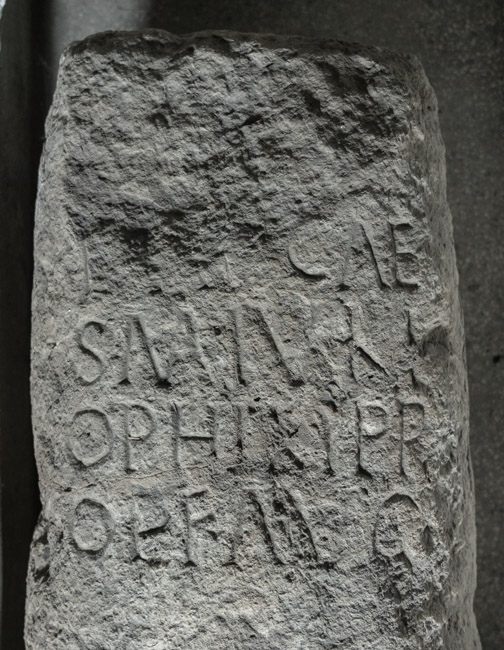 CAE
SMIVLI
OPHILYPP
OPFAVG